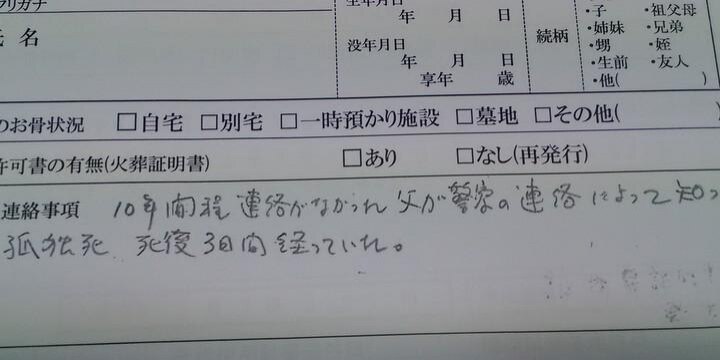 フリガナ
氏名
生年月日
年 月 日
没年月日
年 月 日
享年 歳
続柄
・子 ・祖父母
・姉妹 ・兄弟
・甥 ・姪
・生前 ・友人
・他( )
のお骨状況 □自宅 □別宅 □一時預かり施設 □墓地 □その他(
許可書の有無(火葬証明書) □あり □なし(再発行)
連絡事項 10年間程 連絡がなかった 父が警察の連絡によって知っ
孤独死 死後3日間経っていた。